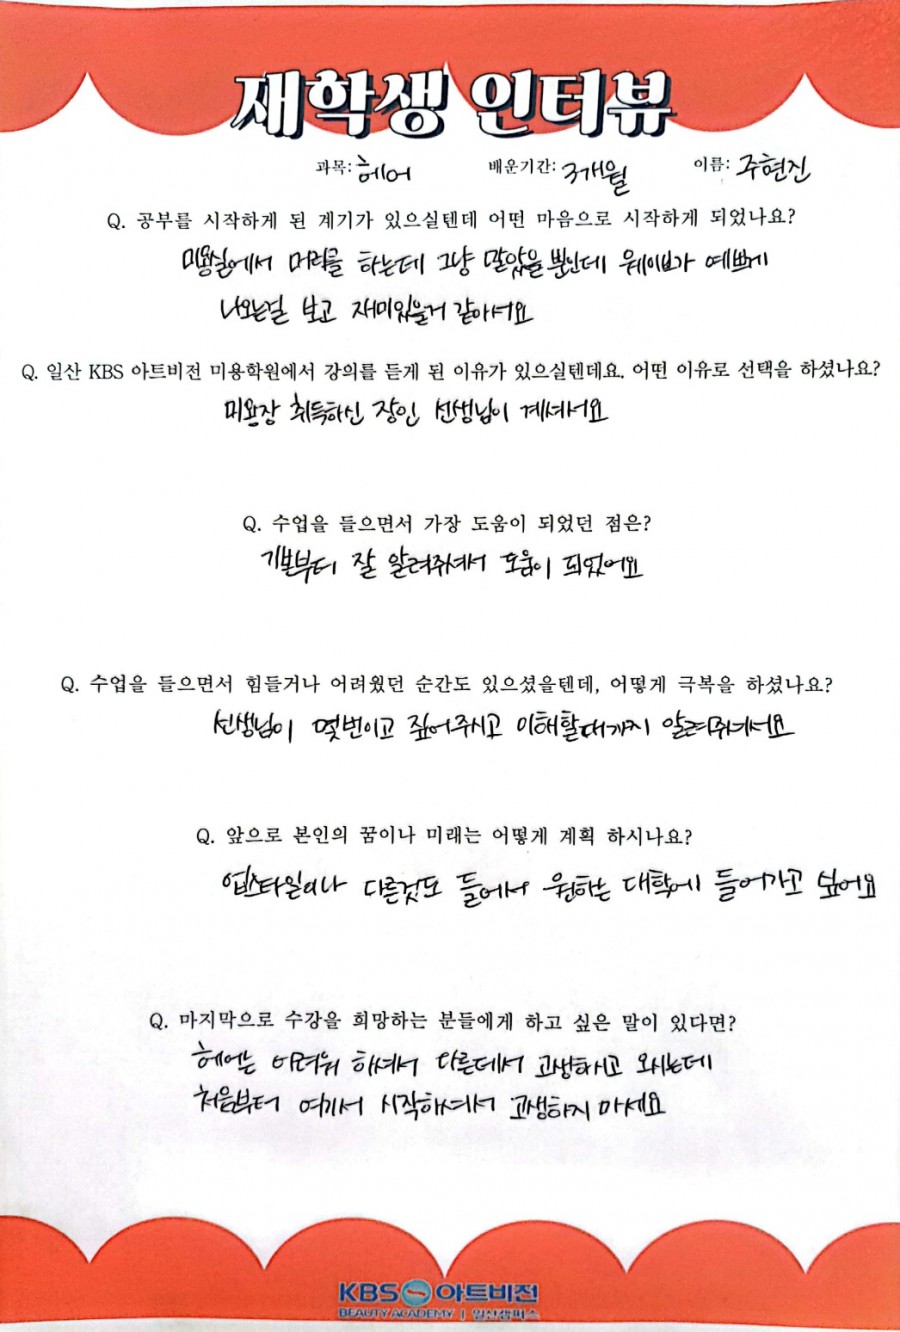 재학생 인터뷰
과목: 헤어 배운기간: 3개월 이름: 주현진
Q. 공부를 시작하게 된 계기가 있으실텐데 어떤 마음으로 시작하게 되었나요?
미용실에서 머리를 하는데 그냥 말았을 뿐인데 웨이브가 예쁘게
나오는걸 보고 재미있을거 같아서요
Q. 일산 KBS 아트비전 미용학원에서 강의를 듣게 된 이유가 있으실텐데요. 어떤 이유로 선택을 하셨나요?
미용장 취득하신 장인 선생님이 계셔서요
Q. 수업을 들으면서 가장 도움이 되었던 점은?
기본부터 잘 알려주셔서 도움이 되었어요
Q. 수업을 들으면서 힘들거나 어려웠던 순간도 있으셨을텐데, 어떻게 극복을 하셨나요?
선생님이 몇번이고 짚어주시고 이해할때까지 알려주셔서요
Q. 앞으로 본인의 꿈이나 미래는 어떻게 계획 하시나요?
업스타일이나 다른것도 들어서 원하는 대학에 들어가고 싶어요
Q. 마지막으로 수강을 희망하는 분들에게 하고 싶은 말이 있다면?
헤어는 어려워 하셔서 다른데서 고생하시고 오시는데
처음부터 여기서 시작하셔서 고생하지 마세요
KBS 아트비전
BEAUTY ACADEMY | 일산캠퍼스